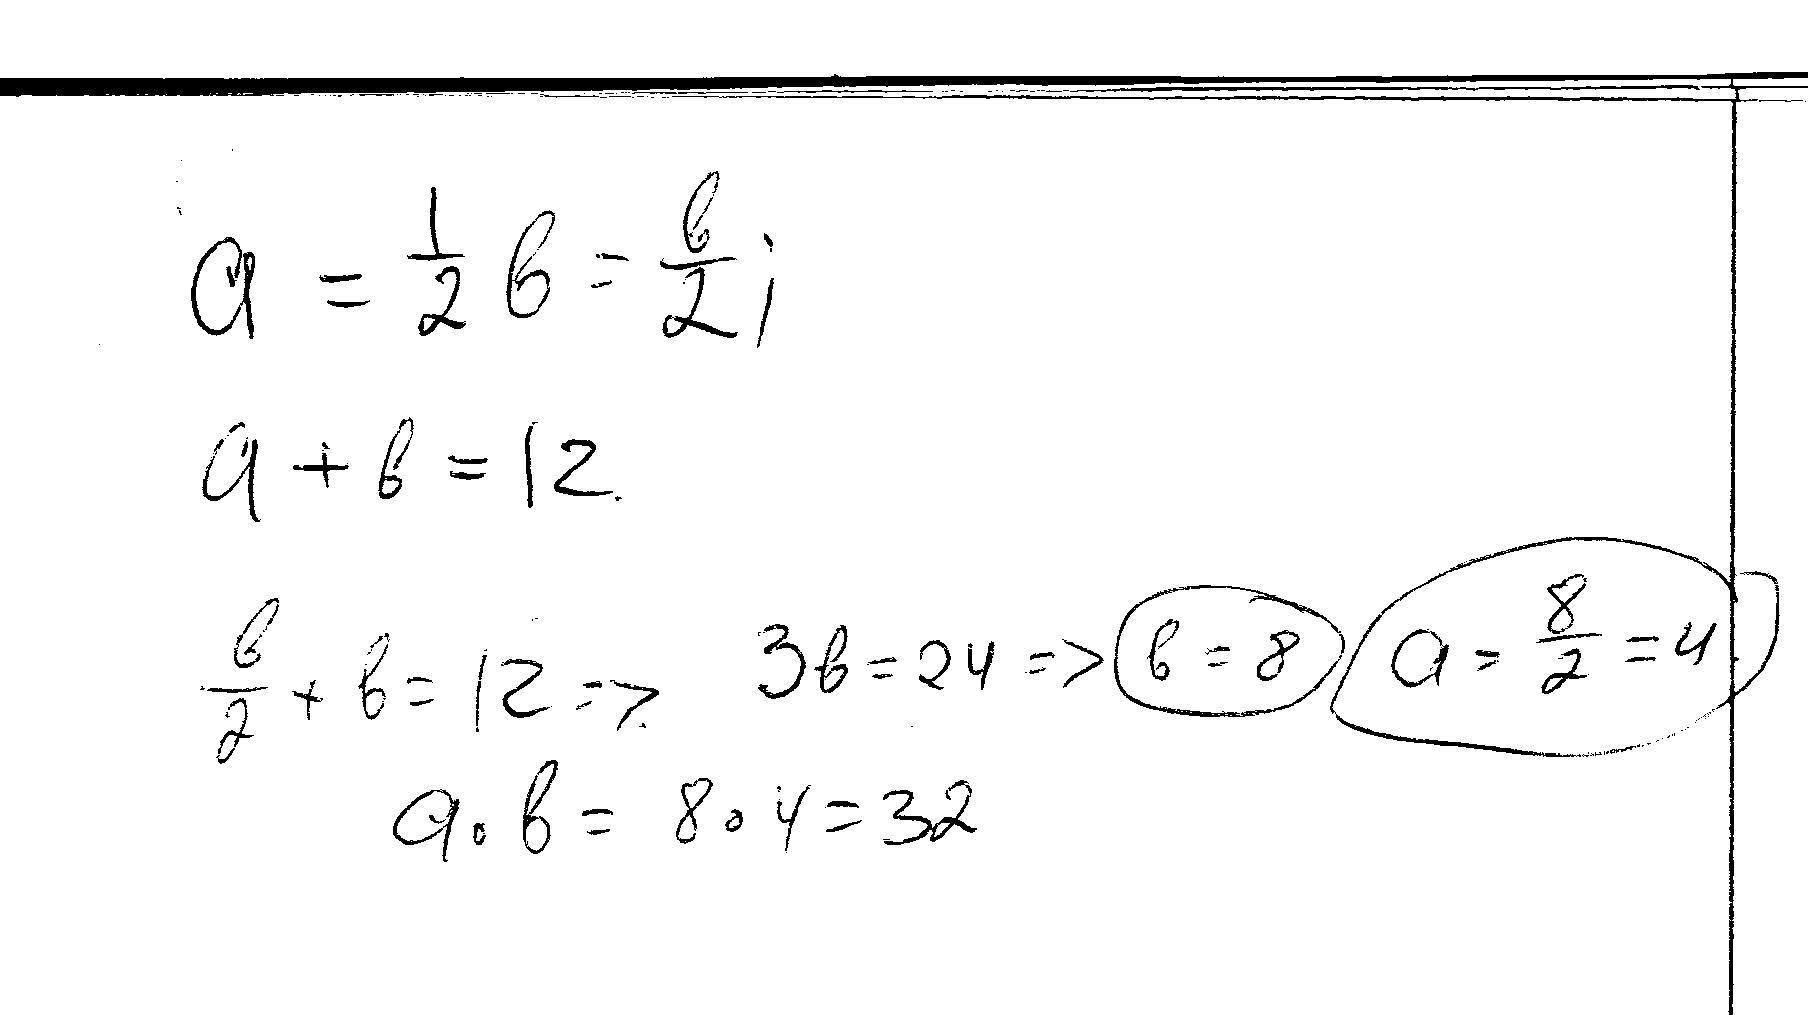 a = 1/2 b = b/2;
a + b = 12.
b/2 + b = 12 => 3b = 24 => b = 8 a = 8/2 = 4
a · b = 8 · 4 = 32